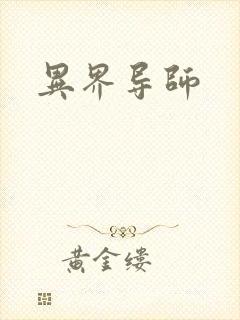 異界导師
黄金缕